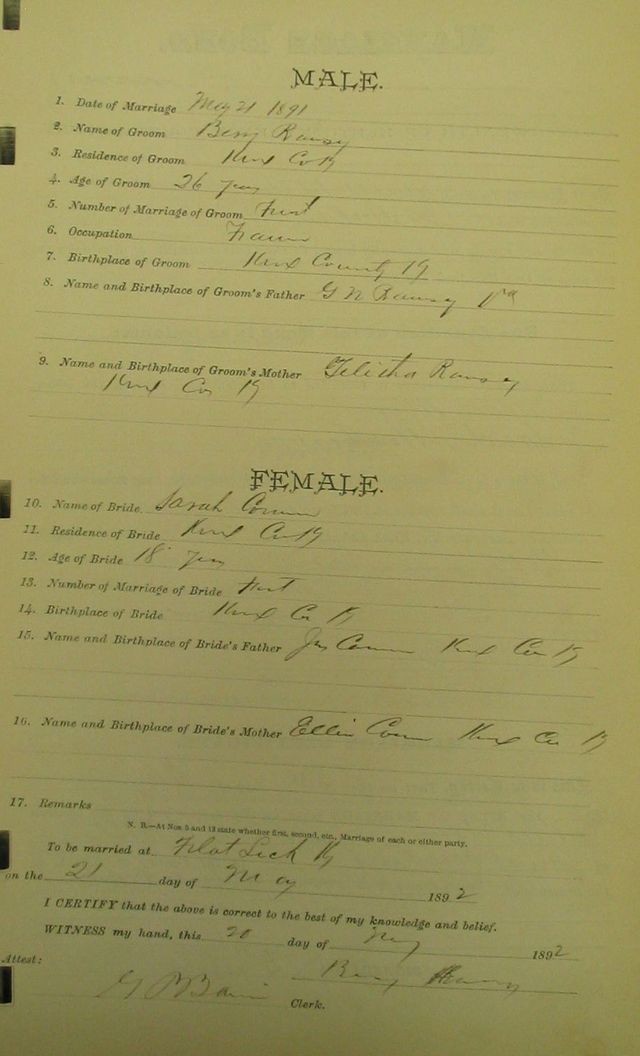 MALE.
1. Date of Marriage May 21 1891
2. Name of Groom Berry Ramsy
3. Residence of Groom Knox Co Ky
4. Age of Groom 26 years
5. Number of Marriage of Groom First
6. Occupation Farmer
7. Birthplace of Groom Knox County Ky
8. Name and Birthplace of Groom's Father G N Ramsey
9. Name and Birthplace of Groom's Mother Telitha Ramsey
Knox Co Ky
FEMALE.
10. Name of Bride Sarah
11. Residence of Bride Knox Co Ky
12. Age of Bride 18 years
13. Number of Marriage of Bride First
14. Birthplace of Bride Knox Co Ky
15. Name and Birthplace of Bride's Father Jas Knox Co Ky
16. Name and Birthplace of Bride's Mother Ellen Knox Co Ky
17. Remarks
N. B.—At Nos 5 and 13 state whether first, second, etc., Marriage of each or either party.
To be married at Flat Lick Ky
on the 21 day of May 1892
I CERTIFY that the above is correct to the best of my knowledge and belief.
WITNESS my hand, this 20 day of May 1892
Attest: Berry Ramsy
Clerk.